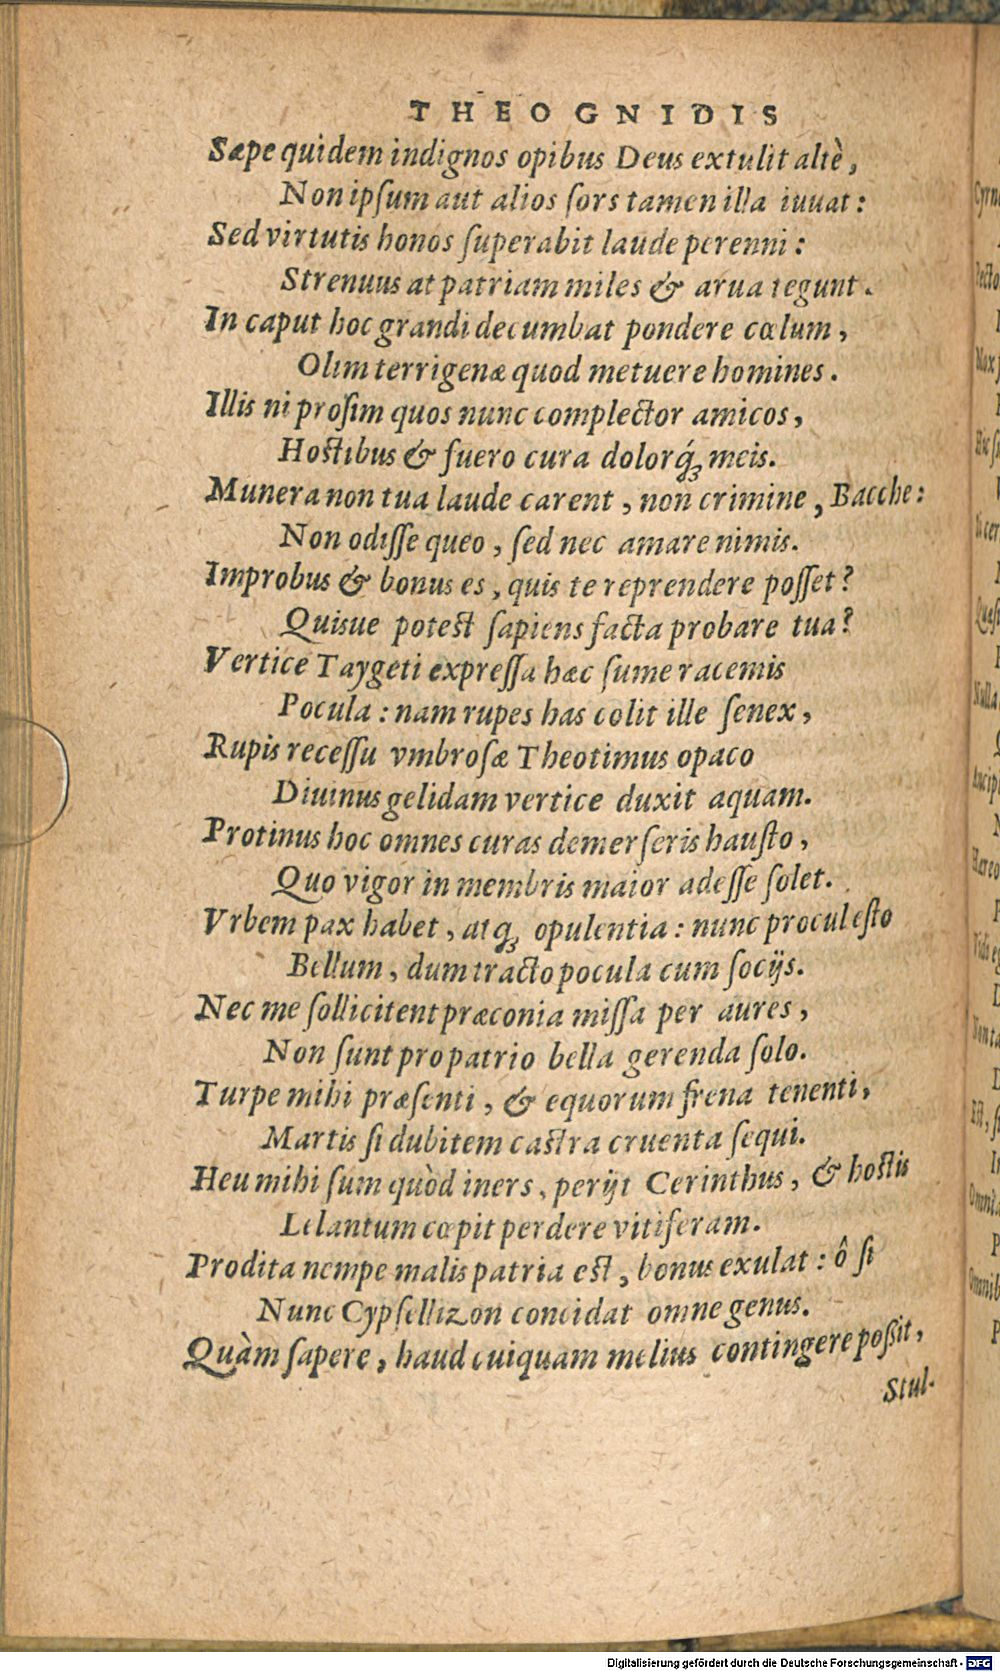 THEOGNIDIS
Sæpe quidem indignos opibus Deus extulit altè,
Non ipſum aut alios ſors tamen illa iuuat:
Sed virtutis honos ſuperabit laude perenni:
Strenuus at patriam miles & arua tegunt.
In caput hoc grandi decumbat pondere cœlum,
Olim terrigenæ quod metuere homines.
Illis ni proſim quos nunc complector amicos,
Hostibus & fuero cura dolorq́ꝫ meis.
Munera non tua laude carent, non crimine, Bacche:
Non odiſſe queo, ſed nec amare nimis.
Improbus & bonus es, quis te reprendere poſſet?
Quisue potest ſapiens facta probare tua?
Vertice Taygeti expreſſa hæc ſume racemis
Pocula: nam rupes has colit ille ſenex,
Rupis receſſu vmbroſæ Theotimus opaco
Diuinus gelidam vertice duxit aquam.
Protinus hoc omnes curas demerſeris hauſto,
Quo vigor in membris maior adeſſe ſolet.
Vrbem pax habet, atqꝫ opulentia: nunc procul eſto
Bellum, dum tracto pocula cum ſocijs.
Nec me ſollicitent præconia miſſa per aures,
Non ſunt pro patrio bella gerenda ſolo.
Turpe mihi præſenti, & equorum frena tenenti,
Martis ſi dubitem caſtra cruenta ſequi.
Heu mihi ſum quòd iners, perijt Cerinthus, & hostis
Lelantum cœpit perdere vitiferam.
Prodita nempe malis patria est, bonus exulat: ô ſi
Nunc Cypſellizon concidat omne genus.
Quàm ſapere, haud cuiquam melius contingere poßit,
Stul-
Digitalisierung gefördert durch die Deutsche Forschungsgemeinschaft - DFG